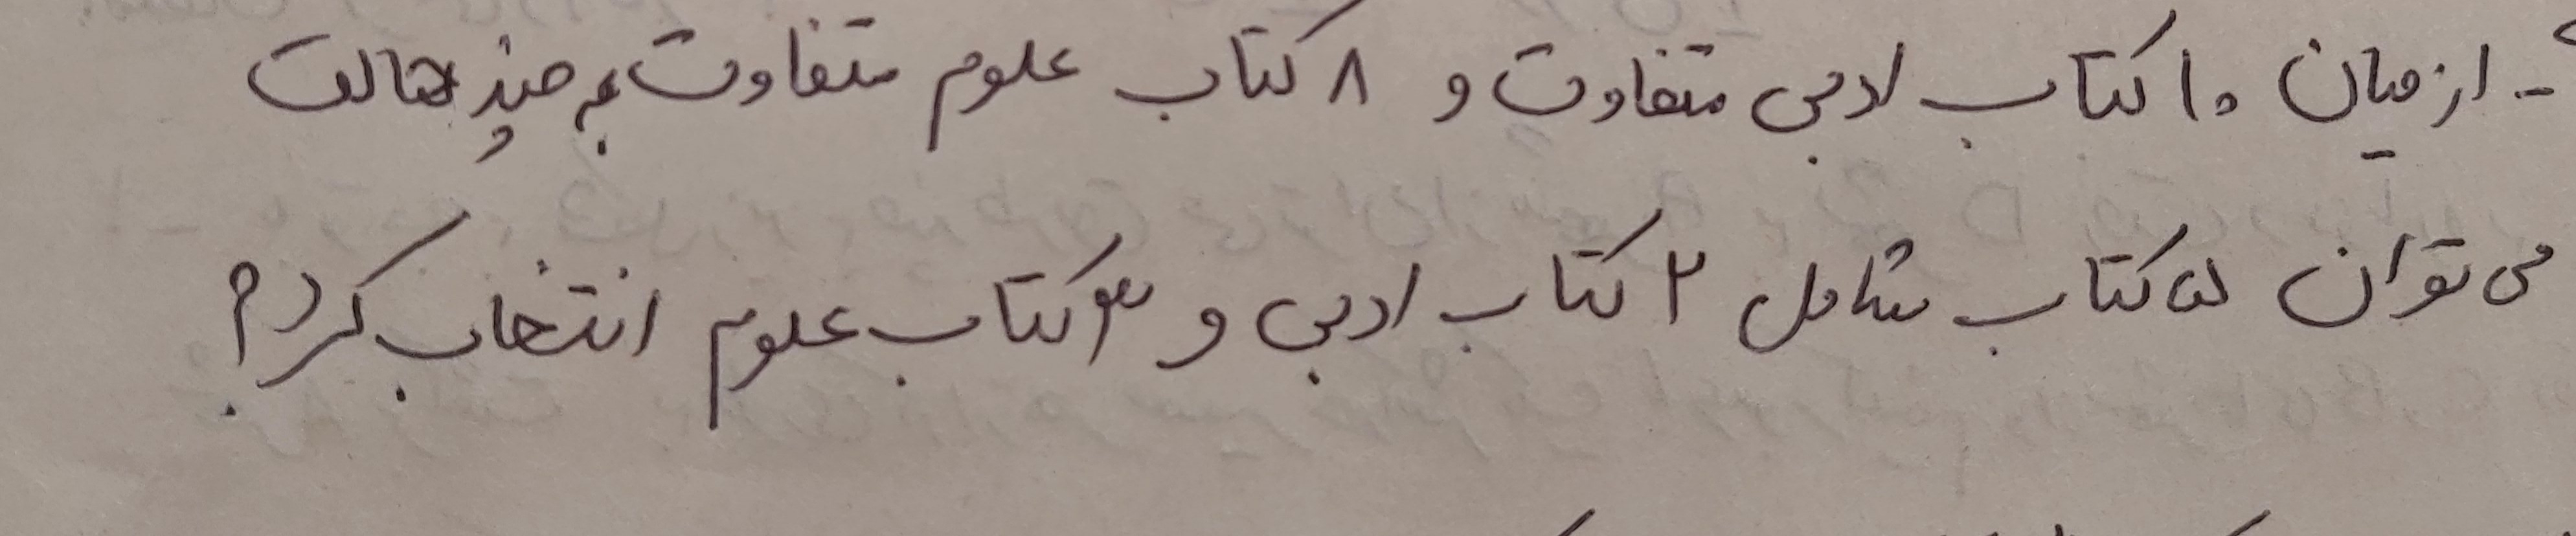 - از میان ۱۰ کتاب ادبی متفاوت و ۸ کتاب علوم متفاوت به چند حالت
می توان ۵ کتاب شامل ۲ کتاب ادبی و ۳ کتاب علوم انتخاب کرد؟